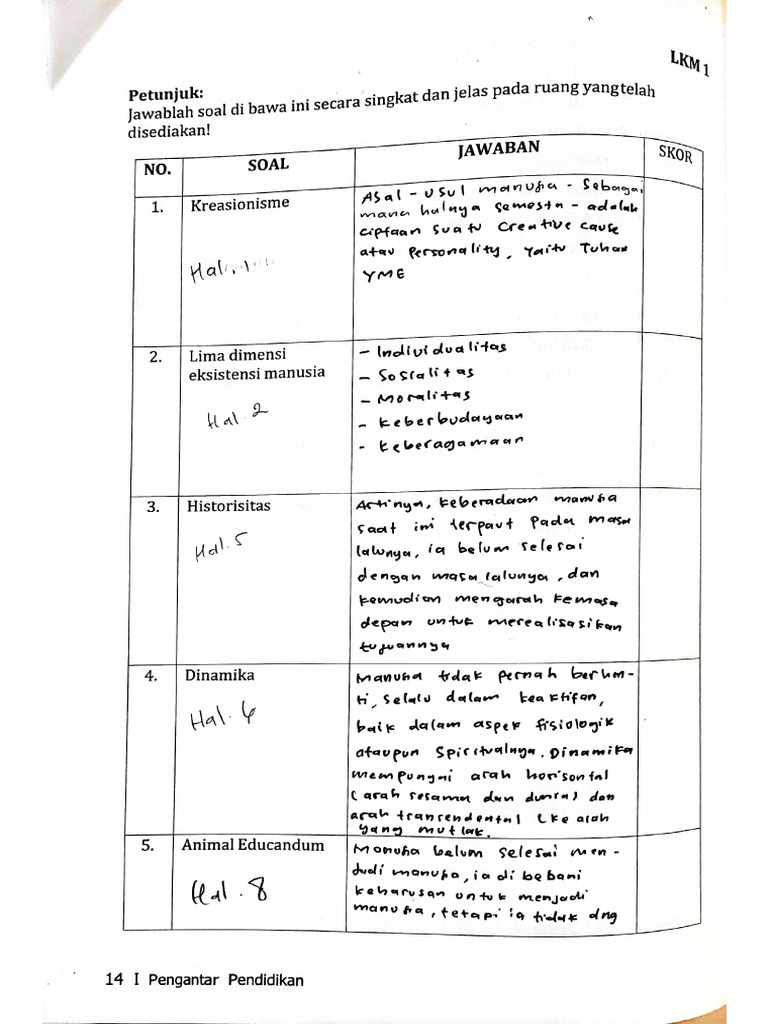 LKM 1
Petunjuk:
Jawablah soal di bawa ini secara singkat dan jelas pada ruang yangtelah
disediakan!
NO. SOAL JAWABAN SKOR
1. Kreasionisme
Hal.
Asal-usul manusia - Sebagai
mana halnya semesta - adalah
ciptaan suatu Creative cause
atau Personality, yaitu Tuhan
YME
2. Lima dimensi
eksistensi manusia
Hal. 2
- Individualitas
- Sosialitas
- Moralitas
- Keberbudayaan
- Keberagamaan
3. Historisitas
Hal. 5
Artinya, keberadaan manusia
saat ini terpaut pada masa
lalunya, ia belum selesai
dengan masa lalunya, dan
kemudian mengarah kemasa
depan untuk merealisasikan
tujuannya
4. Dinamika
Hal. 6
Manusia tidak pernah berhen-
ti, selalu dalam keaktifan,
baik dalam aspek fisiologik
ataupun Spiritualnya. Dinamika
mempunyai arah horisontal
(arah sesama dan dunia) dan
arah transendental (ke arah
yang mutlak.
5. Animal Educandum
Hal. 8
Manusia belum selesai men-
jadi manusia, ia di bebani
keharusan untuk menjadi
manusia, tetapi ia tidak dng
14 I Pengantar Pendidikan